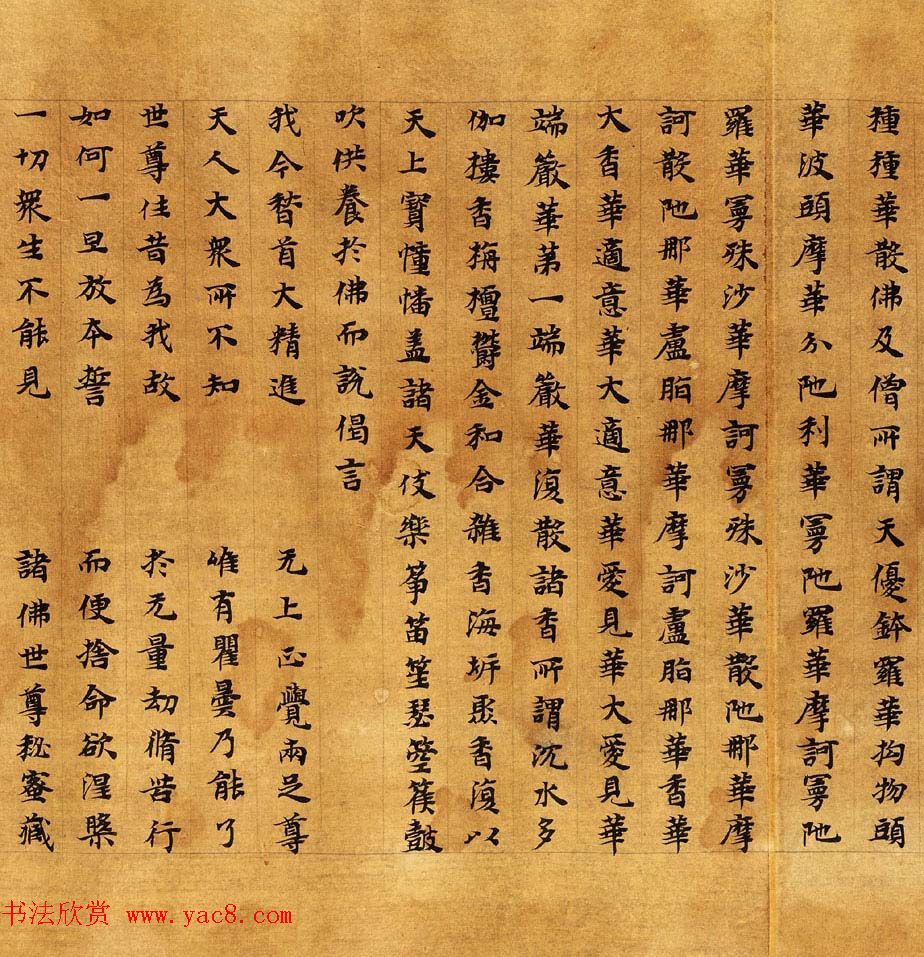 種種華散佛及僧所謂天優鉢羅華拘物頭
華波頭摩華分陁利華曼陁羅華摩訶曼陁
羅華曼殊沙華摩訶曼殊沙華散陁那華摩
訶散陁那華盧脂那華摩訶盧脂那華香華
大香華適意華大適意華愛見華大愛見華
端嚴華第一端嚴華復散諸香所謂沉水多
伽樓香栴檀欝金和合雜香海岸聚香復以
天上寶幢幡盖諸天伎樂筝笛笙瑟箜篌鼓
吹供養於佛而說偈言
我今稽首大精進 无上正覺兩足尊
天人大衆所不知 唯有瞿曇乃能了
世尊往昔為我故 於无量劫脩苦行
如何一旦放本誓 而便捨命欲涅槃
一切衆生不能見 諸佛世尊秘蜜藏
书法欣赏 www.yac8.com